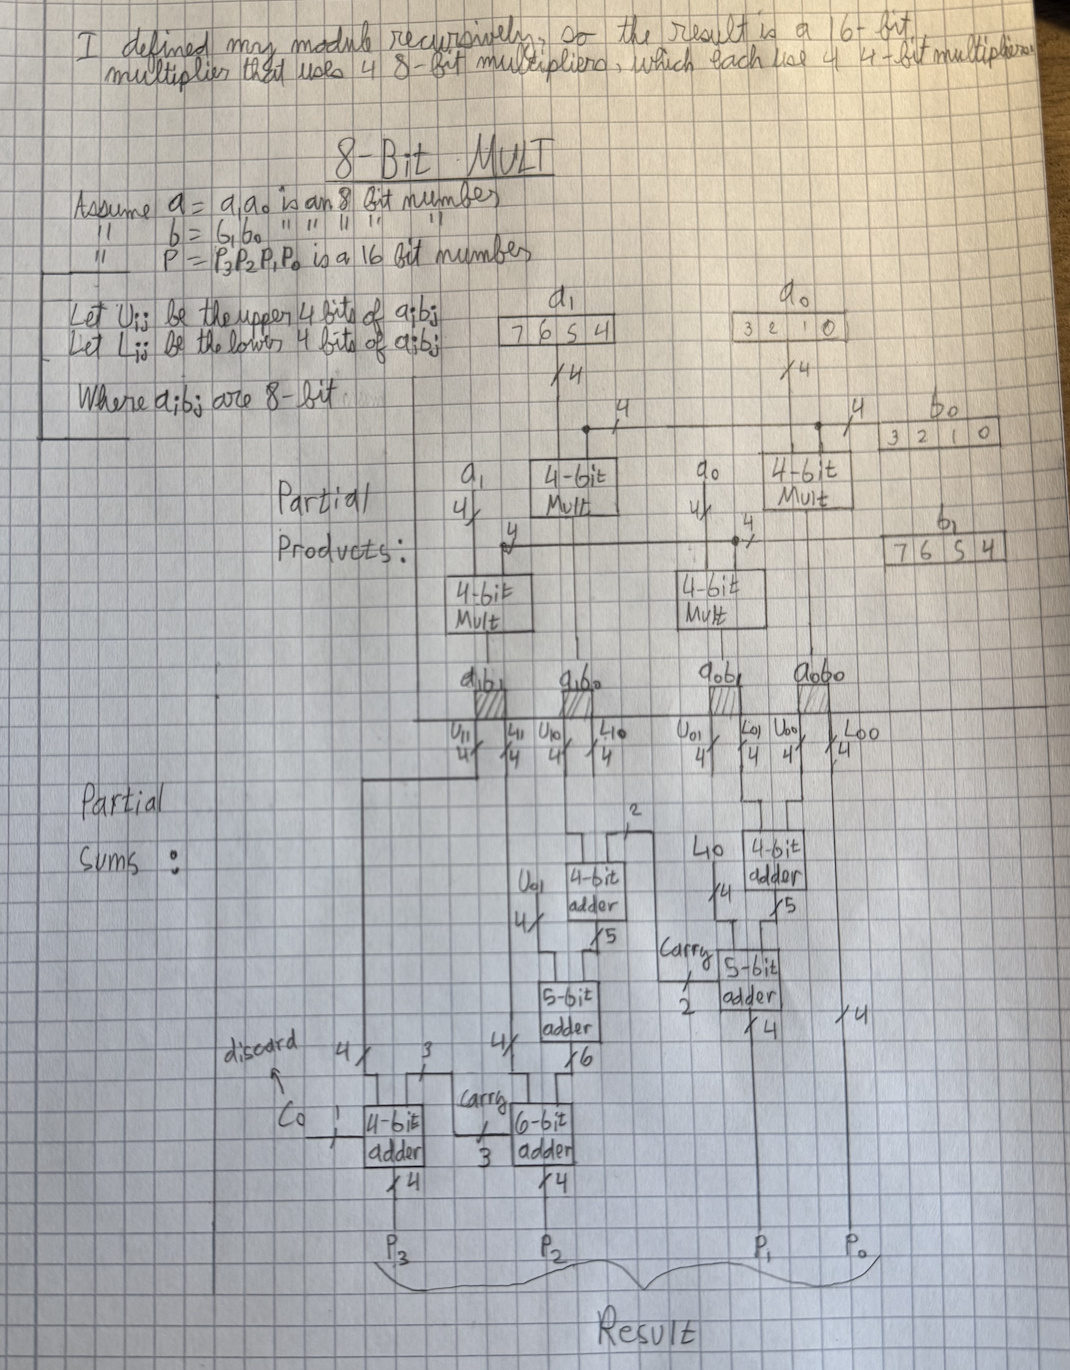 I defined my module recursively, so the result is a 16-bit
multiplier that uses 4 8-bit multipliers, which each use 4 4-bit multipliers.
8-Bit MULT
Assume a = a₁a₀ is an 8 Bit number
" b = b₁b₀ " " " " "
" P = P₃P₂P₁P₀ is a 16 bit number
Let Uᵢⱼ be the upper 4 bits of aᵢbⱼ
Let Lᵢⱼ be the lower 4 bits of aᵢbⱼ
Where aᵢbⱼ are 8-bit.
a₁ a₀
7 6 5 4 3 2 1 0
4 4
4 4 b₀
3 2 1 0
a₁ 4-bit Mult a₀ 4-bit Mult
Partial
4 4
b₁
Products:
4 4
7 6 5 4
4-bit Mult 4-bit Mult
a₁b₁ a₁b₀ a₀b₁ a₀b₀
U₁₁ L₁₁ U₁₀ L₁₀ U₀₁ L₀₁ U₀₀ L₀₀
4 4 4 4 4 4 4 4
Partial
2
Sums :
L₁₀ 4-bit adder
U₀₁ 4-bit adder
4 5
4 5
Carry 5-bit adder
2
5-bit adder
4 4
discard 4 3 4 6
C₀ 1 4-bit adder
Carry 6-bit adder
3
4 4
P₃ P₂ P₁ P₀
Result